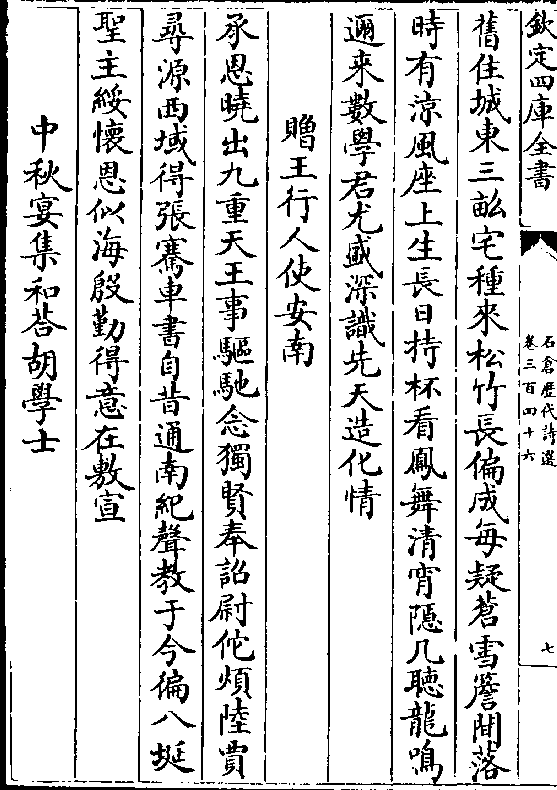 欽定四庫全書
石倉歷代詩選
卷三百四十六
七
舊住城東三畝宅種來松竹長偏成每疑蒼雪簷間落
時有涼風座上生長日持杯看鳳舞清宵隱几聽龍鳴
邇来數學君尤盛深識先天造化情
贈王行人使安南
承恩曉出九重天王事驅馳念獨賢奉詔尉佗煩陸賈
尋源西域得張騫車書自昔通南紀聲教于今徧八埏
聖主綏懷恩似海殷勤得意在敷宣
中秋宴集和荅胡學士